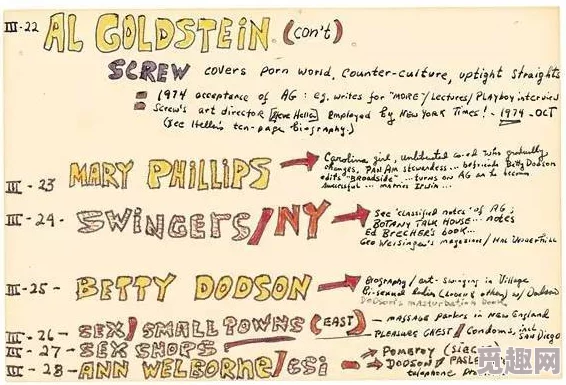 III-22 AL GOLDSTEIN (con't)
SCREW covers porn world, counter-culture, uptight straights
1974 acceptance of AG: eg. writes for "MORE"/Lectures/Playboy interview
Screw's art director [Steve Heller] employed by New York Times! - 1974 - OCT
(see Heller's ten-page biography.)
III-23 MARY PHILLIPS → Carolina girl, unliberated co-ed who gradually
changes, PAN AM stewardess... befriends Betty Dodson
edits "Broadside"... turns on AG as he becomes
successful... marries Irwin...
III-24- SWINGERS/NY → See 'classified notes' of AG;
BOTANY TALK HOUSE... notes
ED BRECHER'S book...
Geo Weisinger's magazine/
III-25- BETTY DODSON → Biography/art-swinging in Village
Bi-sexual ladies (& others) w/ Dodson
Dodson's masturbation book
III-26- SEX/SMALL TOWNS (EAST) - MASSAGE parlors in New England
PLEASURE CHEST // Condoms, incl. San Diego
III-27- SEX SHOPS
III-28- ANN WELBORNE/esi → POMEROY
→ DODSON
telephone
觅趣网